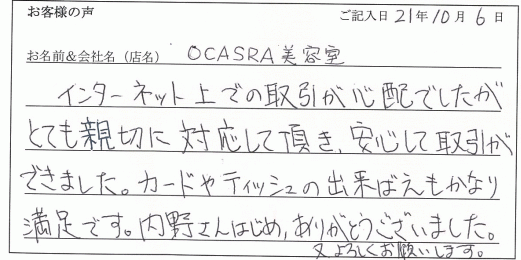 お客様の声 ご記入日 21年10月6日
お名前&会社名(店名) OCASRA美容室
インターネット上での取引が心配でしたが
とても親切に対応して頂き、安心して取引が
できました。カードやティッシュの出来ばえもかなり
満足です。内野さんはじめ、ありがとうございました。
又よろしくお願いします。